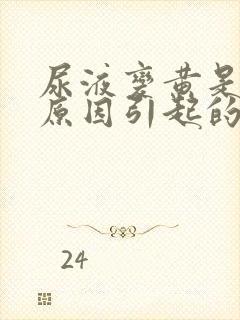 尿液变黄是
原因引起的
24